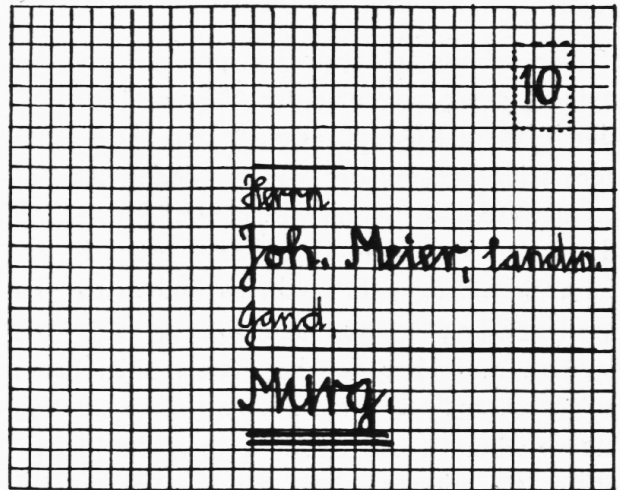 10
Herrn
Joh. Meier, Landw.
Gand
Murg.